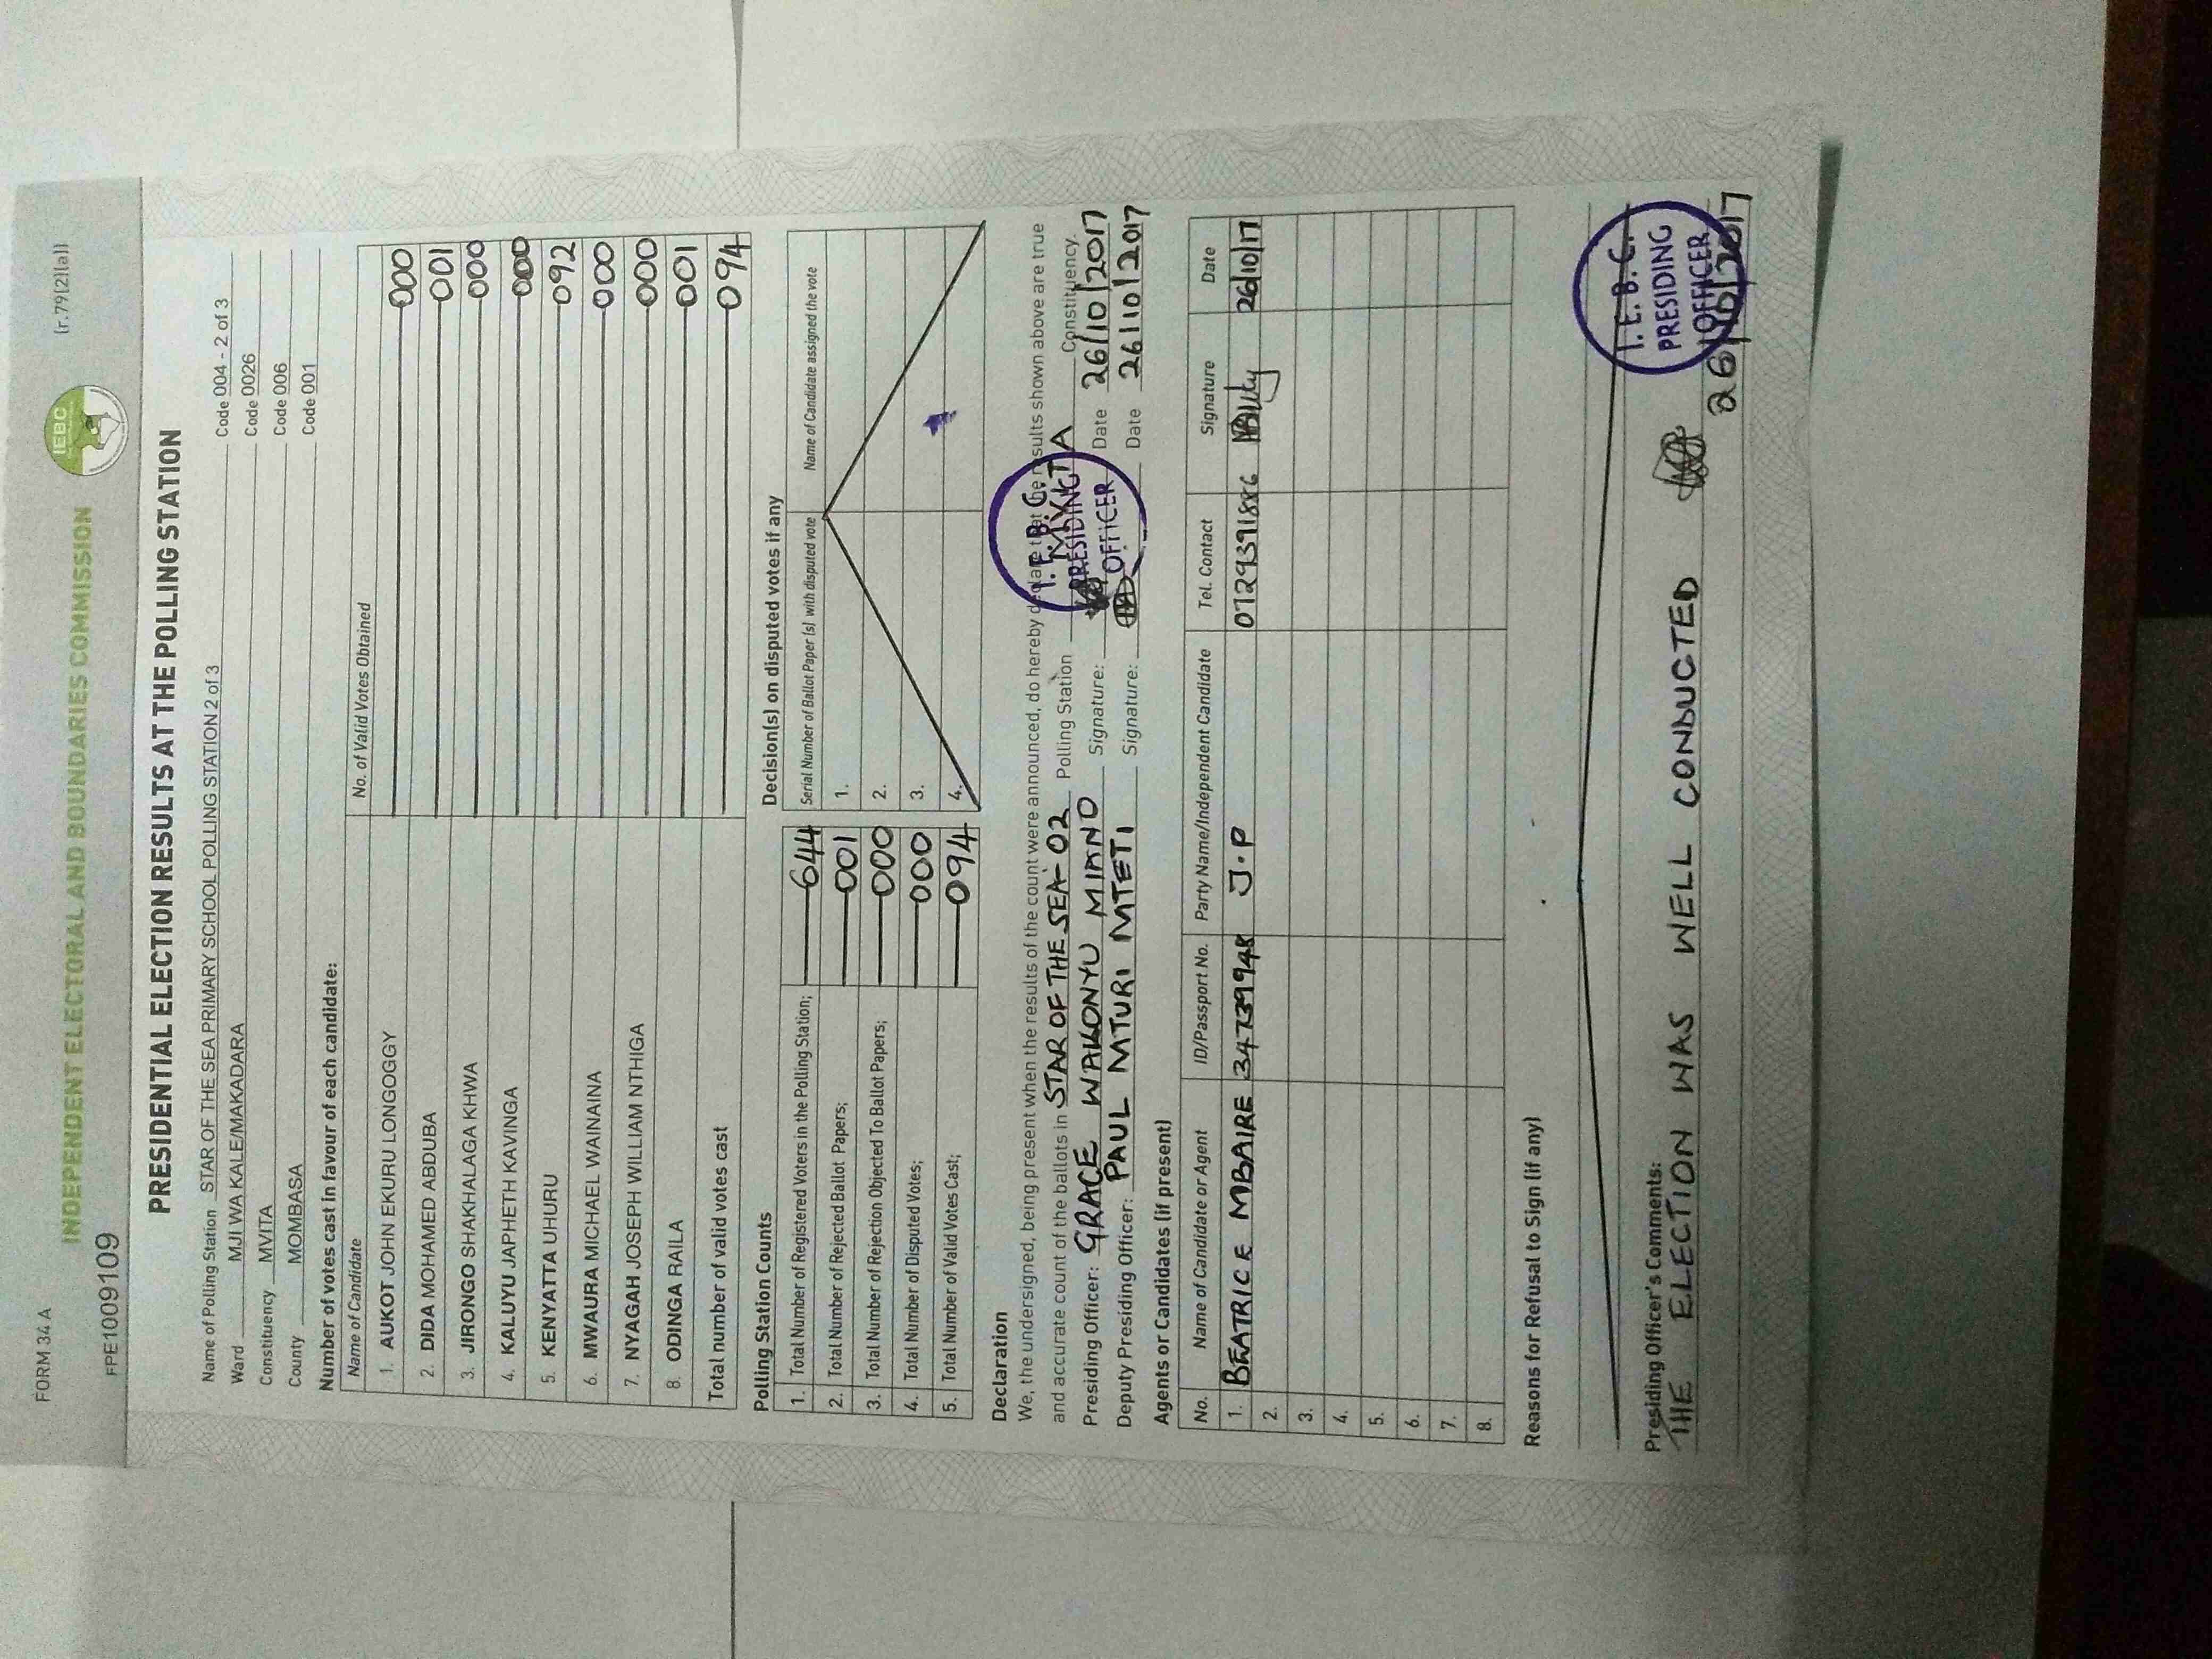 FORM 34 A
(r.79(2)(a))
FPE1009109
IEBC
INDEPENDENT ELECTORAL AND BOUNDARIES COMMISSION
PRESIDENTIAL ELECTION RESULTS AT THE POLLING STATION
Name of Polling Station STAR OF THE SEA PRIMARY SCHOOL POLLING STATION 2 of 3 Code 004 - 2 of 3
Ward MJI WA KALE/MAKADARA Code 0026
Constituency MVITA Code 006
County MOMBASA Code 001
Number of votes cast in favour of each candidate:
Name of Candidate No. of Valid Votes Obtained
1. AUKOT JOHN EKURU LONGOGGY 000
2. DIDA MOHAMED ABDUBA 001
3. JIRONGO SHAKHALAGA KHWA 000
4. KALUYU JAPHETH KAVINGA 000
5. KENYATTA UHURU 092
6. MWAURA MICHAEL WAINAINA 000
7. NYAGAH JOSEPH WILLIAM NTHIGA 000
8. ODINGA RAILA 001
Total number of valid votes cast 094
Polling Station Counts
1. Total Number of Registered Voters in the Polling Station; 644
2. Total Number of Rejected Ballot Papers; 001
3. Total Number of Rejection Objected To Ballot Papers; 000
4. Total Number of Disputed Votes; 000
5. Total Number of Valid Votes Cast; 094
Decision(s) on disputed votes if any
Serial Number of Ballot Paper (s) with disputed vote Name of Candidate assigned the vote
1.
2.
3.
4.
Declaration
We, the undersigned, being present when the results of the count were announced, do hereby declare that the results shown above are true
and accurate count of the ballots in STAR OF THE SEA - 02 Polling Station MVITA Constituency.
Presiding Officer: GRACE WAKONYU MIANO Signature: Date 26/10/2017
Deputy Presiding Officer: PAUL MTURI MTETI Signature: Date 26/10/2017
I.E.B.C.
PRESIDING
OFFICER
Agents or Candidates (if present)
No. Name of Candidate or Agent ID/Passport No. Party Name/Independent Candidate Tel. Contact Signature Date
1. BEATRICE MBAIRE 34739948 J.P 0729391886 26/10/17
2.
3.
4.
5.
6.
7.
8.
Reasons for Refusal to Sign (if any)
I.E.B.C.
PRESIDING
OFFICER
Presiding Officer's Comments:
THE ELECTION WAS WELL CONDUCTED
26/10/2017